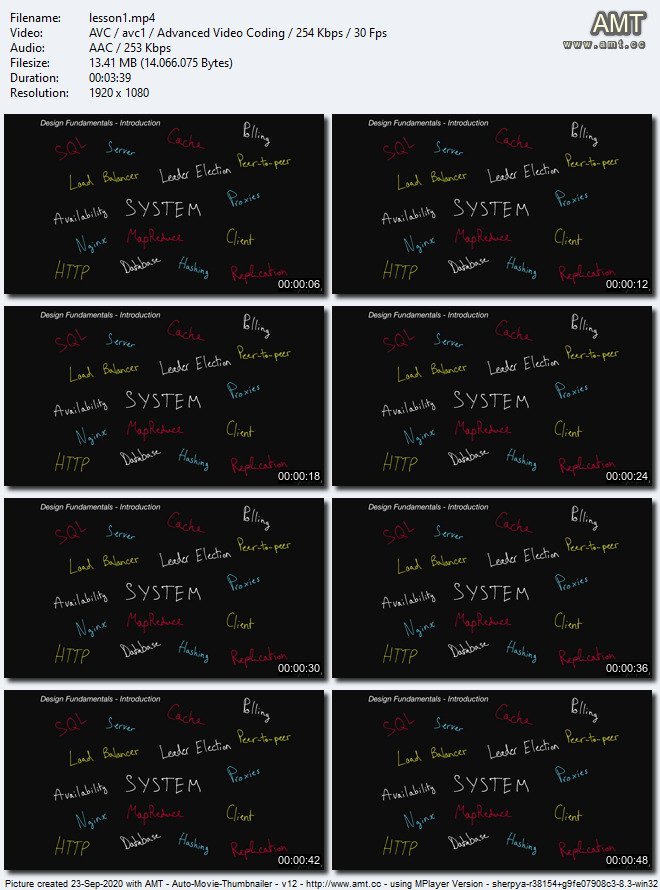 Filename: lesson1.mp4
Video: AVC / avc1 / Advanced Video Coding / 254 Kbps / 30 Fps
Audio: AAC / 253 Kbps
Filesize: 13.41 MB (14.066.075 Bytes)
Duration: 00:03:39
Resolution: 1920 x 1080
AMT
www.amt.cc
Design Fundamentals - Introduction
SQL Server Cache Polling
Load Balancer Leader Election Peer-to-peer
Availability SYSTEM Proxies
Nginx MapReduce Client
HTTP Database Hashing Replication
00:00:06
Design Fundamentals - Introduction
SQL Server Cache Polling
Load Balancer Leader Election Peer-to-peer
Availability SYSTEM Proxies
Nginx MapReduce Client
HTTP Database Hashing Replication
00:00:12
Design Fundamentals - Introduction
SQL Server Cache Polling
Load Balancer Leader Election Peer-to-peer
Availability SYSTEM Proxies
Nginx MapReduce Client
HTTP Database Hashing Replication
00:00:18
Design Fundamentals - Introduction
SQL Server Cache Polling
Load Balancer Leader Election Peer-to-peer
Availability SYSTEM Proxies
Nginx MapReduce Client
HTTP Database Hashing Replication
00:00:24
Design Fundamentals - Introduction
SQL Server Cache Polling
Load Balancer Leader Election Peer-to-peer
Availability SYSTEM Proxies
Nginx MapReduce Client
HTTP Database Hashing Replication
00:00:30
Design Fundamentals - Introduction
SQL Server Cache Polling
Load Balancer Leader Election Peer-to-peer
Availability SYSTEM Proxies
Nginx MapReduce Client
HTTP Database Hashing Replication
00:00:36
Design Fundamentals - Introduction
SQL Server Cache Polling
Load Balancer Leader Election Peer-to-peer
Availability SYSTEM Proxies
Nginx MapReduce Client
HTTP Database Hashing Replication
00:00:42
Design Fundamentals - Introduction
SQL Server Cache Polling
Load Balancer Leader Election Peer-to-peer
Availability SYSTEM Proxies
Nginx MapReduce Client
HTTP Database Hashing Replication
00:00:48
Picture created 23-Sep-2020 with AMT - Auto-Movie-Thumbnailer - v12 - http://www.amt.cc - using MPlayer Version - sherpya-r38154+g9fe07908c3-8.3-win32